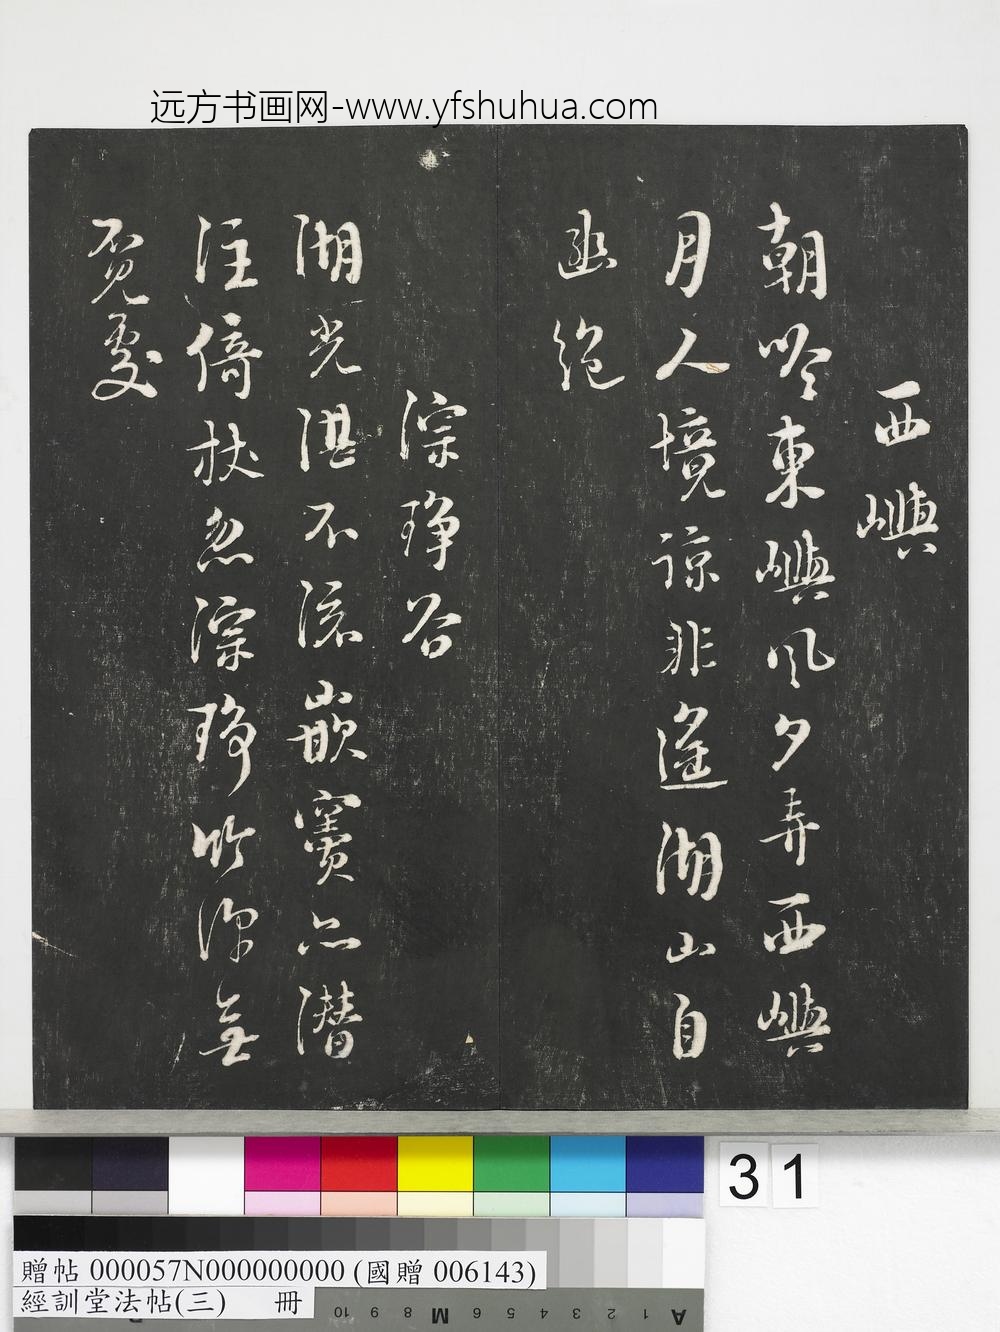 远方书画网-www.yfshuhua.com
西嶼
朝吟東嶼風夕弄西嶼
月人境諒非遙湖山自
幽絕
淙琤谷
湖光湛不流嵌竇亦潛
注倚杖忽淙琤竹深無
覓處
31
贈帖 000057N000000000 (國贈 006143)
經訓堂法帖(三) 冊
10 9 8 M 6 5 4 3 2 1 A